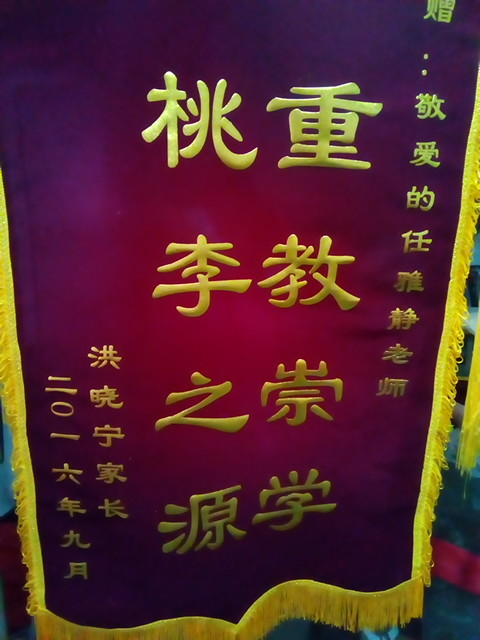 赠：敬爱的任雅静老师
重教崇学
桃李之源
洪晓宁家长
二〇一六年九月